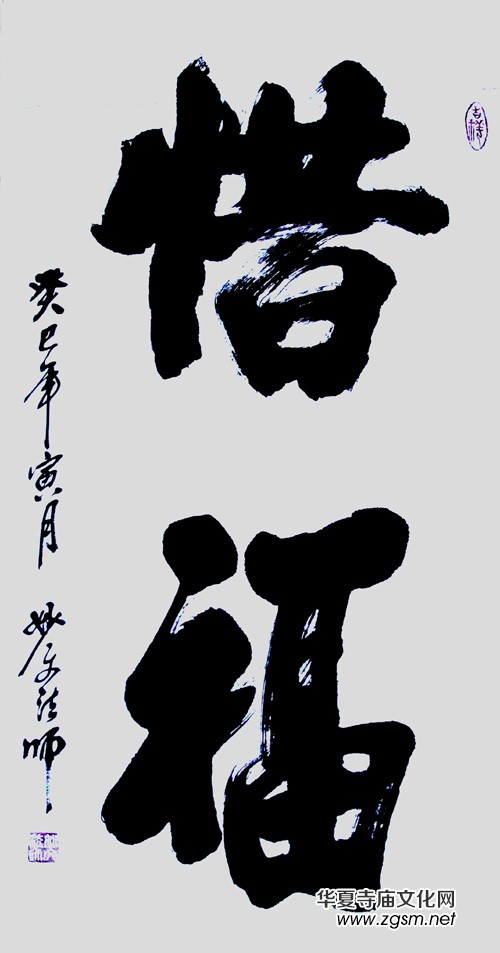 惜福
吉祥
癸巳年寅月 妙文法師
华夏寺庙文化网
www.zgsm.net